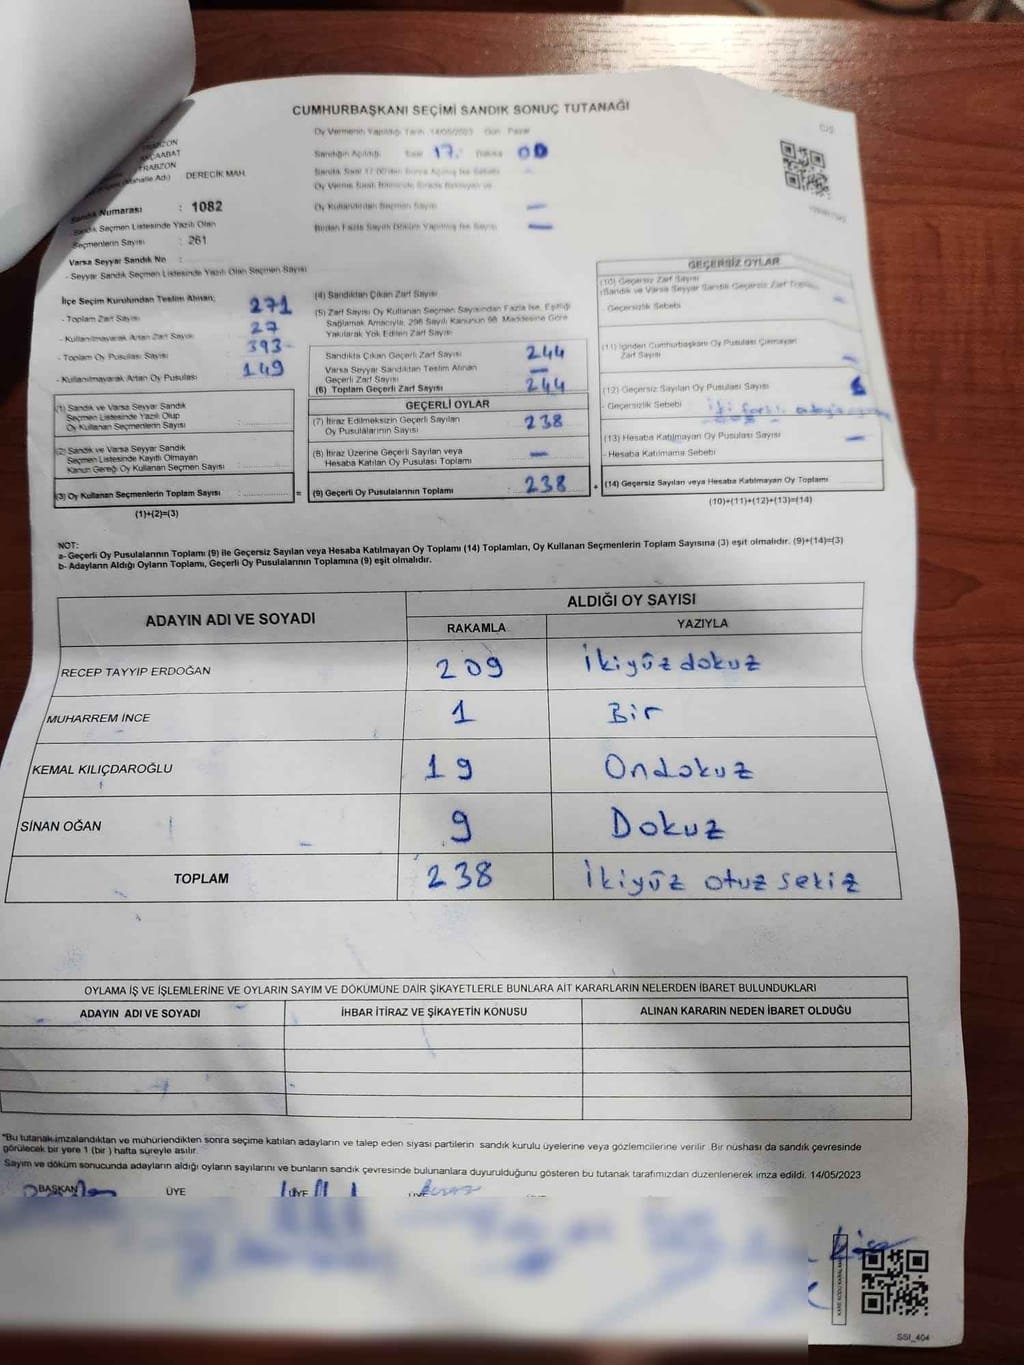 CUMHURBAŞKANI SEÇİMİ SANDIK SONUÇ TUTANAĞI
Oy Vermenin Yapıldığı Tarih 14/05/2023 Gün Pazar
TRABZON
AKÇAABAT
TRABZON
(Mahalle Adı) DERECİK MAH.
Sandığın Açıldığı Saat 17. Dakika 00
Oy Kullandırılan Seçmen Sayısı —
Birden Fazla Sayım Döküm Yapılmış İse Sayısı —
Sandık Numarası : 1082
Sandık Seçmen Listesinde Yazılı Olan
Seçmenlerin Sayısı : 261
Varsa Seyyar Sandık No :
- Seyyar Sandık Seçmen Listesinde Yazılı Olan Seçmen Sayısı
İlçe Seçim Kurulundan Teslim Alınan;
- Toplam Zarf Sayısı 271
- Kullanılmayarak Artan Zarf Sayısı 27
- Toplam Oy Pusulası Sayısı 393
- Kullanılmayarak Artan Oy Pusulası 149
(1) Sandık ve Varsa Seyyar Sandık
Seçmen Listesinde Yazılı Olup
Oy Kullanan Seçmenlerin Sayısı
(2) Sandık ve Varsa Seyyar Sandık
Seçmen Listesinde Kayıtlı Olmayan
Kanun Gereği Oy Kullanan Seçmen Sayısı
(3) Oy Kullanan Seçmenlerin Toplam Sayısı :
(1)+(2)=(3)
(4) Sandıktan Çıkan Zarf Sayısı
(5) Zarf Sayısı Oy Kullanan Seçmen Sayısından Fazla İse, Eşitliği
Sağlamak Amacıyla, 298 Sayılı Kanunun 98. Maddesine Göre
Yakılarak Yok Edilen Zarf Sayısı
Sandıkta Çıkan Geçerli Zarf Sayısı 244
Varsa Seyyar Sandıktan Teslim Alınan
Geçerli Zarf Sayısı —
(6) Toplam Geçerli Zarf Sayısı 244
GEÇERLİ OYLAR
(7) İtiraz Edilmeksizin Geçerli Sayılan
Oy Pusulalarının Sayısı 238
(8) İtiraz Üzerine Geçerli Sayılan veya
Hesaba Katılan Oy Pusulası Toplamı —
= (9) Geçerli Oy Pusulalarının Toplamı : 238
GEÇERSİZ OYLAR
(10) Geçersiz Zarf Sayısı
(Sandık ve Varsa Seyyar Sandık Geçersiz Zarf Toplamı) —
Geçersizlik Sebebi
(11) İçinden Cumhurbaşkanı Oy Pusulası Çıkmayan
Zarf Sayısı —
(12) Geçersiz Sayılan Oy Pusulası Sayısı 6
- Geçersizlik Sebebi iki farklı
(13) Hesaba Katılmayan Oy Pusulası Sayısı —
- Hesaba Katılmama Sebebi
+ (14) Geçersiz Sayılan veya Hesaba Katılmayan Oy Toplamı
(10)+(11)+(12)+(13)=(14)
NOT:
a- Geçerli Oy Pusulalarının Toplamı (9) ile Geçersiz Sayılan veya Hesaba Katılmayan Oy Toplamı (14) Toplamları, Oy Kullanan Seçmenlerin Toplam Sayısına (3) eşit olmalıdır. (9)+(14)=(3)
b- Adayların Aldığı Oyların Toplamı, Geçerli Oy Pusulalarının Toplamına (9) eşit olmalıdır.
ADAYIN ADI VE SOYADI ALDIĞI OY SAYISI
RAKAMLA YAZIYLA
RECEP TAYYİP ERDOĞAN 209 İkiyüz dokuz
MUHARREM İNCE 1 Bir
KEMAL KILIÇDAROĞLU 19 Ondokuz
SİNAN OĞAN 9 Dokuz
TOPLAM 238 İkiyüz otuz sekiz
OYLAMA İŞ VE İŞLEMLERİNE VE OYLARIN SAYIM VE DÖKÜMÜNE DAİR ŞİKAYETLERLE BUNLARA AİT KARARLARIN NELERDEN İBARET BULUNDUKLARI
ADAYIN ADI VE SOYADI İHBAR İTİRAZ VE ŞİKAYETİN KONUSU ALINAN KARARIN NEDEN İBARET OLDUĞU
*Bu tutanak imzalandıktan ve mühürlendikten sonra seçime katılan adayların ve talep eden siyasi partilerin sandık kurulu üyelerine veya gözlemcilerine verilir. Bir nüshası da sandık çevresinde
görülecek bir yere 1 (bir) hafta süreyle asılır.
Sayım ve döküm sonucunda adayların aldığı oyların sayılarını ve bunların sandık çevresinde bulunanlara duyurulduğunu gösteren bu tutanak tarafımızdan düzenlenerek imza edildi. 14/05/2023
BAŞKAN ÜYE ÜYE
SSI_404